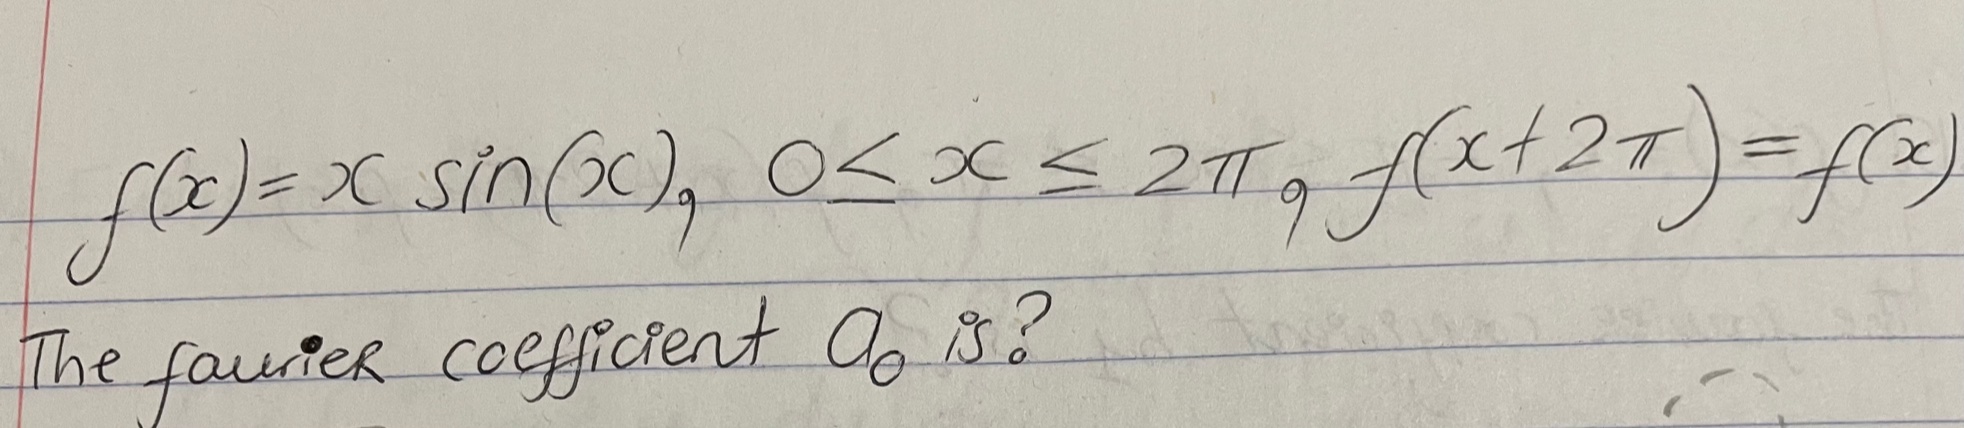 f(x) = x sin(x), 0 ≤ x ≤ 2π, f(x+2π) = f(x)
The faurier coefficient a₀ is?